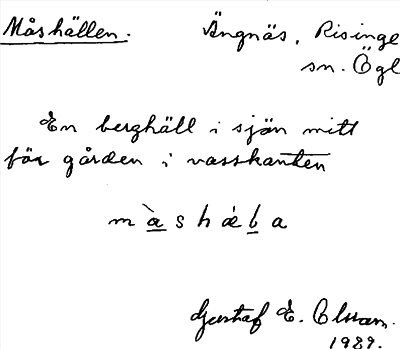 Måshällen. Ängnäs, Risinge
sn. Ögl
En berghäll i sjön mitt
för gården i vasskanten
m à s h á b a
Gustaf E. Olsson.
1989.